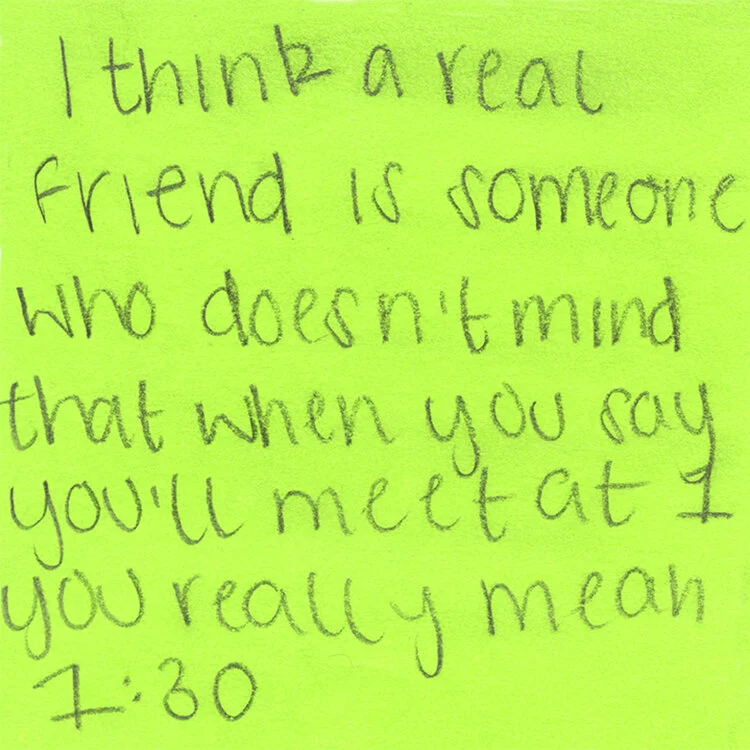 I think a real
friend is someone
who doesn't mind
that when you say
you'll meet at 1
you really mean
1:30